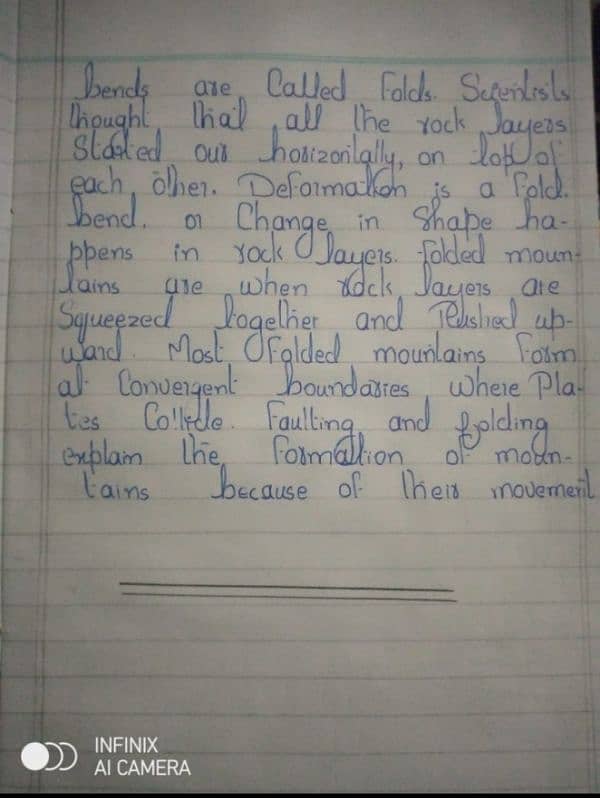 bends are Called Folds. Scientists
thought that all the rock layers
Started our horizontally, on top of
each other. Deformation is a fold.
bend. or Change in Shape ha-
ppens in rock layers. folded moun-
tains are when rock layers are
Squeezed together and Pushed up-
ward. Most folded mountains Form
at Convergent boundaries where Pla-
tes Collide. Faulting and folding
explain the Formation of moun-
tains because of their movement
INFINIX
AI CAMERA